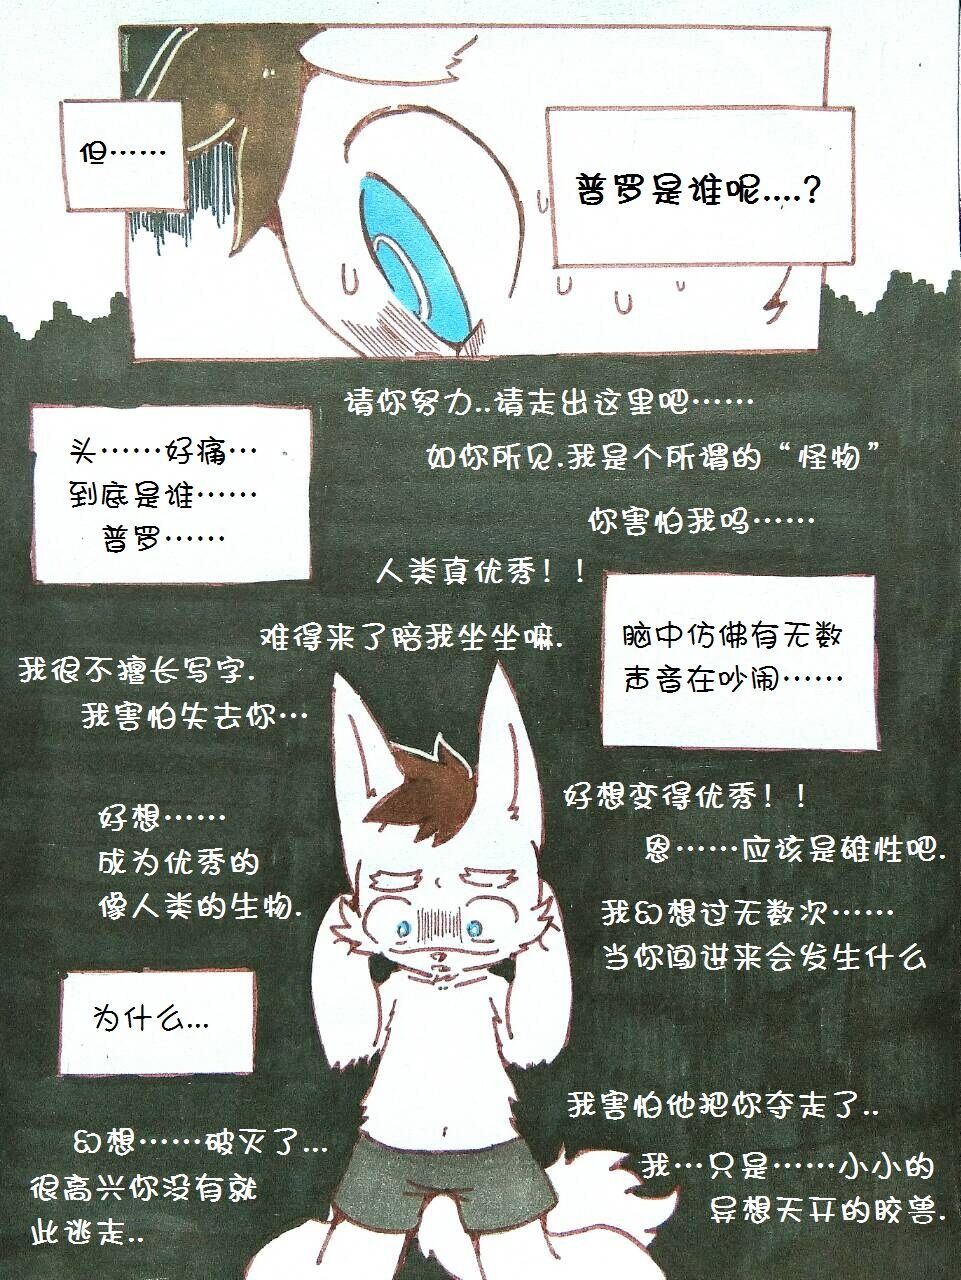 但······
普罗是谁呢....?
请你努力..请走出这里吧······
头······好痛···
到底是谁······
普罗······
如你所见.我是个所谓的“怪物”
你害怕我吗······
人类真优秀！！
难得来了陪我坐坐嘛.
脑中仿佛有无数
声音在吵闹······
我很不擅长写字.
我害怕失去你···
好想变得优秀！！
好想······
成为优秀的
像人类的生物.
恩······应该是雄性吧.
我幻想过无数次······
当你闯进来会发生什么
为什么...
我害怕他把你夺走了..
幻想······破灭了...
很高兴你没有就
此逃走..
我···只是······小小的
异想天开的胶兽.